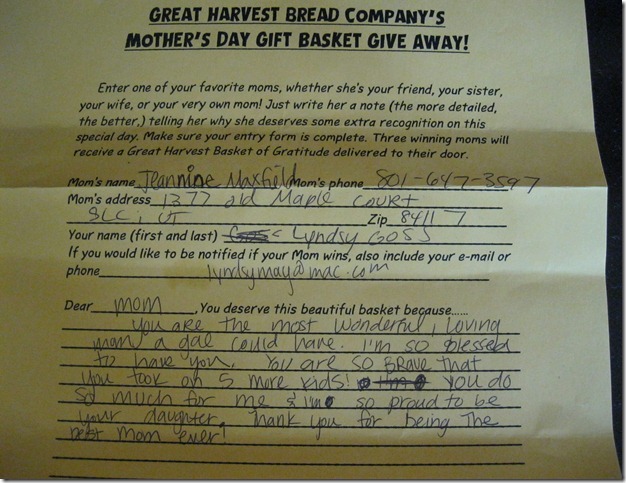 GREAT HARVEST BREAD COMPANY'S
MOTHER'S DAY GIFT BASKET GIVE AWAY!
Enter one of your favorite moms, whether she's your friend, your sister,
your wife, or your very own mom! Just write her a note (the more detailed,
the better,) telling her why she deserves some extra recognition on this
special day. Make sure your entry form is complete. Three winning moms will
receive a Great Harvest Basket of Gratitude delivered to their door.
Mom's name Jeannine Maxfield Mom's phone 801-647-3597
Mom's address 1377 old Maple court
SLC, UT Zip 84117
Your name (first and last) Lyndsy Goss
If you would like to be notified if your Mom wins, also include your e-mail or
phone lyndsymay@mac.com
Dear mom, You deserve this beautiful basket because......
you are the most wonderful, loving
mom a gal could have. I'm so blessed
to have you. You are so BRAVE that
you took on 5 more kids! you do
so much for me & I'm so proud to be
your daughter. Thank you for being The
best mom ever!